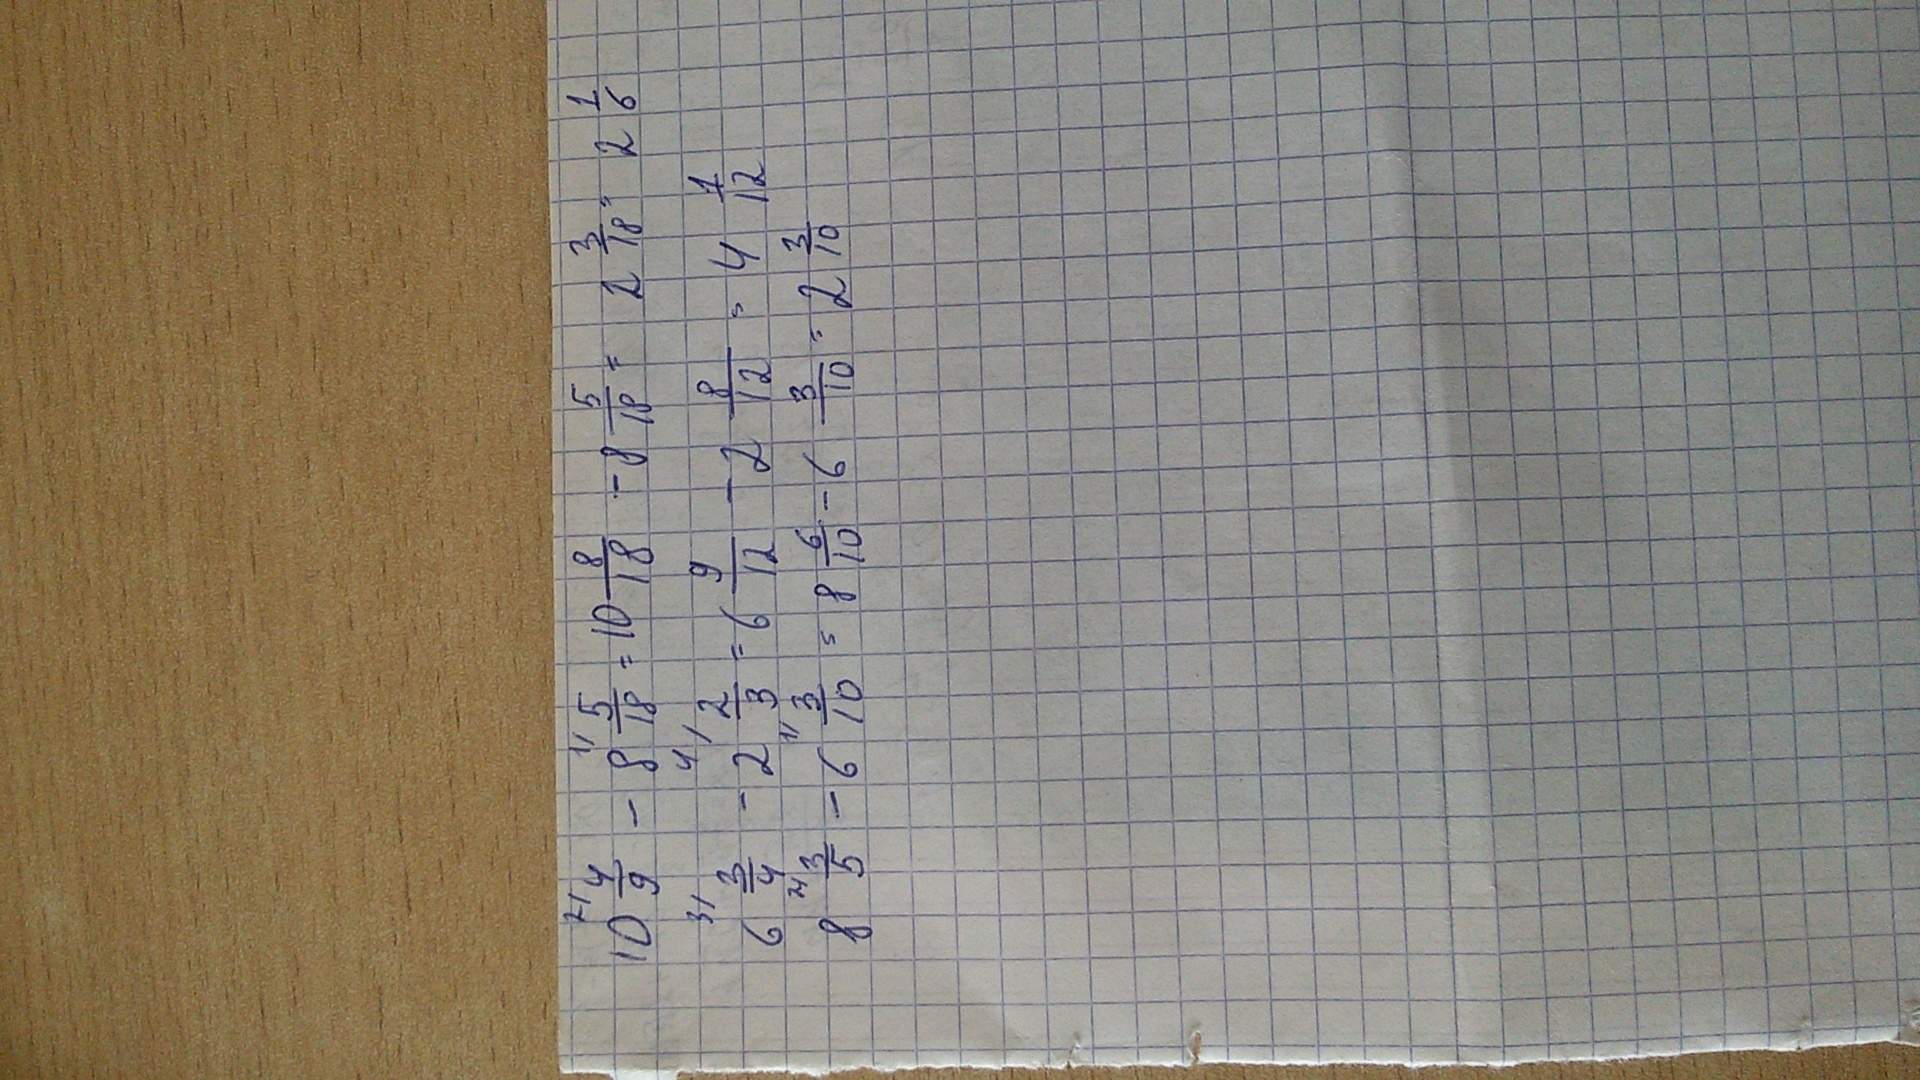 10 2/ 4/9 - 8 1/ 5/18 = 10 8/18 - 8 5/18 = 2 3/18 = 2 1/6
6 3/ 3/4 - 2 4/ 2/3 = 6 9/12 - 2 8/12 = 4 1/12
8 2/ 3/5 - 6 1/ 3/10 = 8 6/10 - 6 3/10 = 2 3/10